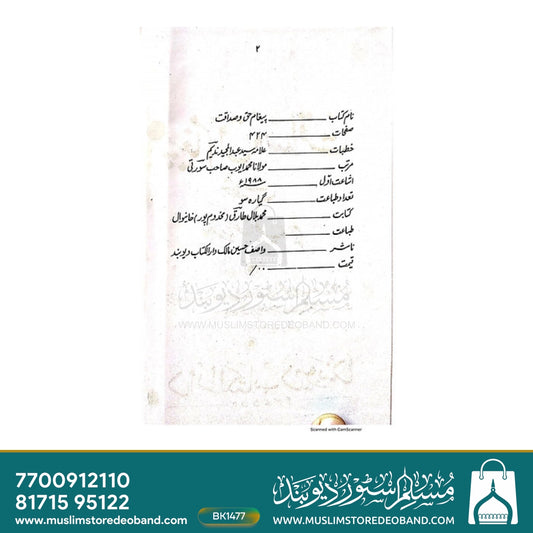 ۲
نام کتاب ـــــــ پیغام حق و صداقت
صفحات ـــــــ ۴۲۴
خطبات ـــــــ علامہ سید عبدالمجید ندیم
مرتب ـــــــ مولانا محمد ایوب صاحب سورتی
اشاعت اول ـــــــ ۱۹۸۸ء
تعداد طباعت ـــــــ گیارہ سو
کتابت ـــــــ محمد بلال طارق (مخدوم پور) خانیوال
طباعت ـــــــ
ناشر ـــــــ واصف حسین مالک دارالکتاب دیوبند
قیمت ـــــــ ۱۰۰/
مسلم اسٹور دیوبند
WWW.MUSLIMSTOREDEOBAND.COM
Scanned with CamScanner
7700912110
81715 95122
www.muslimstoredeoband.com
BK1477
مسلم اسٹور دیوبند
WWW.MUSLIMSTOREDEOBAND.COM